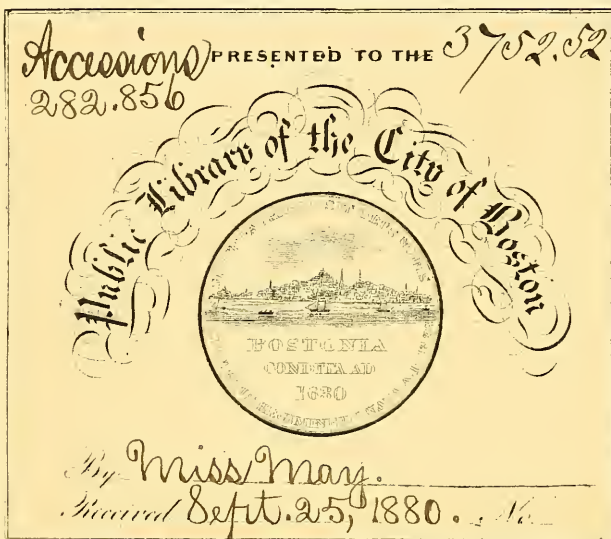 Accessions PRESENTED TO THE 3752.52
282.856
Public Library of the City of Boston
BOSTONIA
CONDITA AD
1630
By Miss May.
Received Sept. 25, 1880. No.